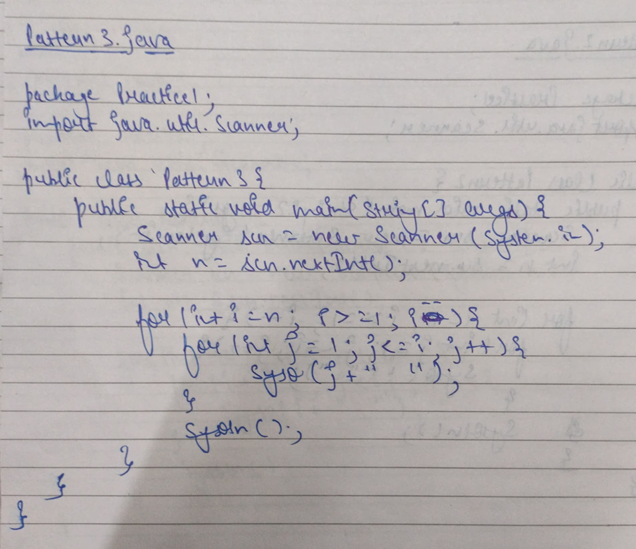 Pattern 3. Java
package Practice1;
import java.util.Scanner;
public class Pattern 3 {
public static void main(String[] args) {
Scanner scn = new Scanner (System.in);
int n = scn.nextInt();
for (int i = n; i >= 1; i--) {
for (int j = 1; j <= i; j++) {
Syso (j + " ");
}
Sysoln ();
}
}
}